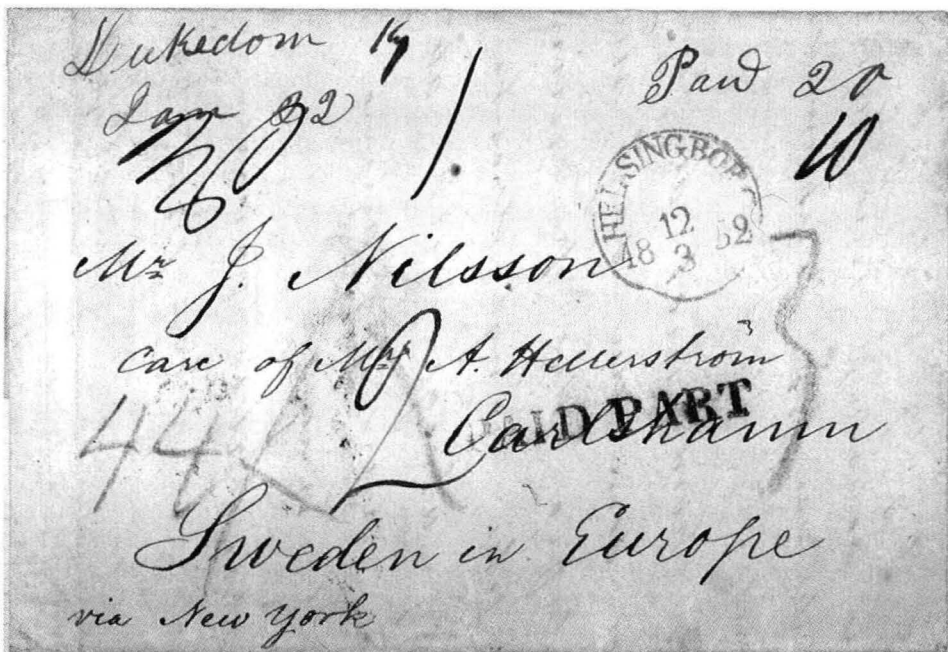 Dukedom Ky
Jan 22
Paid 20
10
HELSINGBORG
12
18 3 52
Mr J. Nilsson
care of Mr A. Hellerström
PAID PART
Carlshamn
44
Sweden in Europe
via New York